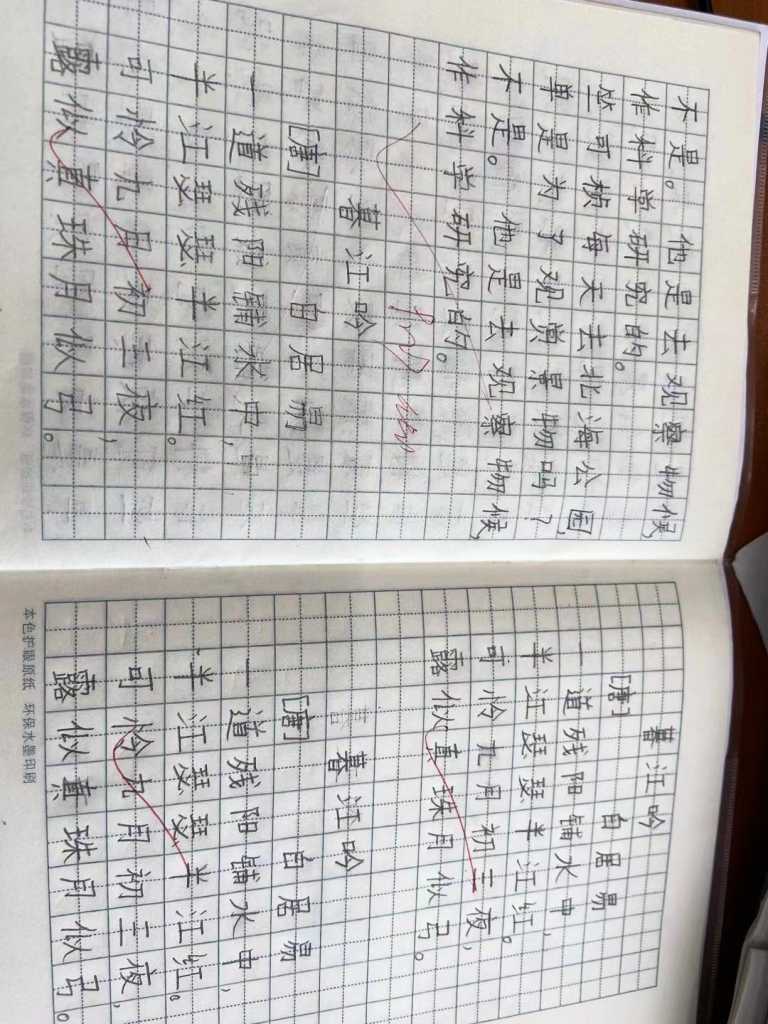 不是。他是去观察物候,
作科学研究的。
竺可桢每天去北海公园
单是为了观赏景物吗?
不是。他是去观察物候,
作科学研究的。
暮江吟
[唐] 白居易
一道残阳铺水中,
半江瑟瑟半江红。
可怜九月初三夜,
露似真珠月似弓。
暮江吟
[唐] 白居易
一道残阳铺水中,
半江瑟瑟半江红。
可怜九月初三夜,
露似真珠月似弓。
暮江吟
[唐] 白居易
一道残阳铺水中,
半江瑟瑟半江红。
可怜九月初三夜,
露似真珠月似弓。
本色护眼原纸 环保水墨印刷